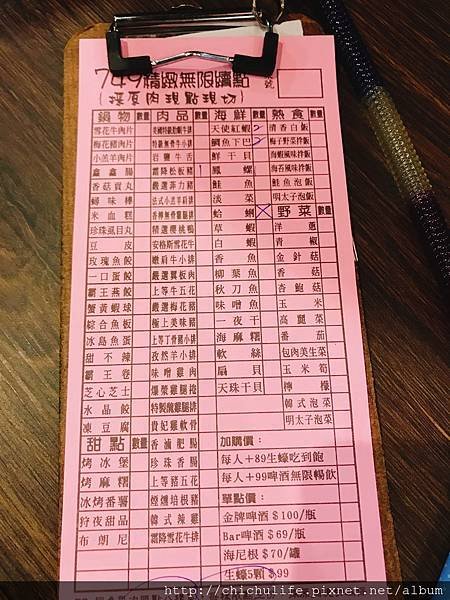 749精緻無限饗點
號
(採原肉現點現切)
鍋物 數量 肉品 數量 海鮮 數量 熱食 數量
雪花牛肉片 美國特級肋眼牛排 天使紅蝦 清香白飯
梅花豬肉片 特級無骨牛小排 鯛魚下巴 梅子野菜拌飯
小羔羊肉片 岩鹽牛舌 鮮干貝 海蝦風味拌飯
鑫鑫腸 霜降松板豬 1 鳳螺 海苔風味拌飯
香菇貢丸 嚴選菲力豬 鮭魚 鮭魚泡飯
蟳味棒 法式小羔羊肩排 淡菜 明太子泡飯
米血糕 香檸無骨雞腿排 蛤蜊 野菜 數量
珍珠虱目丸 精選櫻桃鴨 草蝦 洋蔥
豆皮 安格斯雪花牛 白蝦 青椒
玫瑰魚餃 嫩肩牛小排 香魚 金針菇
一口蛋餃 嚴選翼板肉 柳葉魚 香菇
霸王燕餃 上等牛五花 秋刀魚 杏鮑菇
蟹黃蝦球 嚴選梅花豬 味噌魚 玉米
綜合魚板 極上美味豬 一夜干 高麗菜
冰島魚蛋 上等丁骨豬小排 海麻糬 番茄
甜不辣 孜然羊小排 軟絲 包肉美生菜
霸王卷 味噌雞肉 扇貝 玉米筍
芝心芝士 爆漿雞腿捲 天珠干貝 檸檬
水晶餃 特製醃雞腿排 韓式泡菜
凍豆腐 貴妃雞軟骨 明太子泡菜
甜點 數量 香滷肥腸 加購價:
烤冰堡 珍珠香腸 每人+89生蠔吃到飽
烤麻糬 上等豬五花 每人+99啤酒無限暢飲
冰烤番薯 煙燻培根豬 單點價:
狩夜甜品 韓式辣雞 金牌啤酒$100/瓶
布朗尼 霜降雪花牛排 Bar啤酒$69/瓶
海尼根$70/罐
生蠔5顆$99
http://chichulife.pixnet.net/album